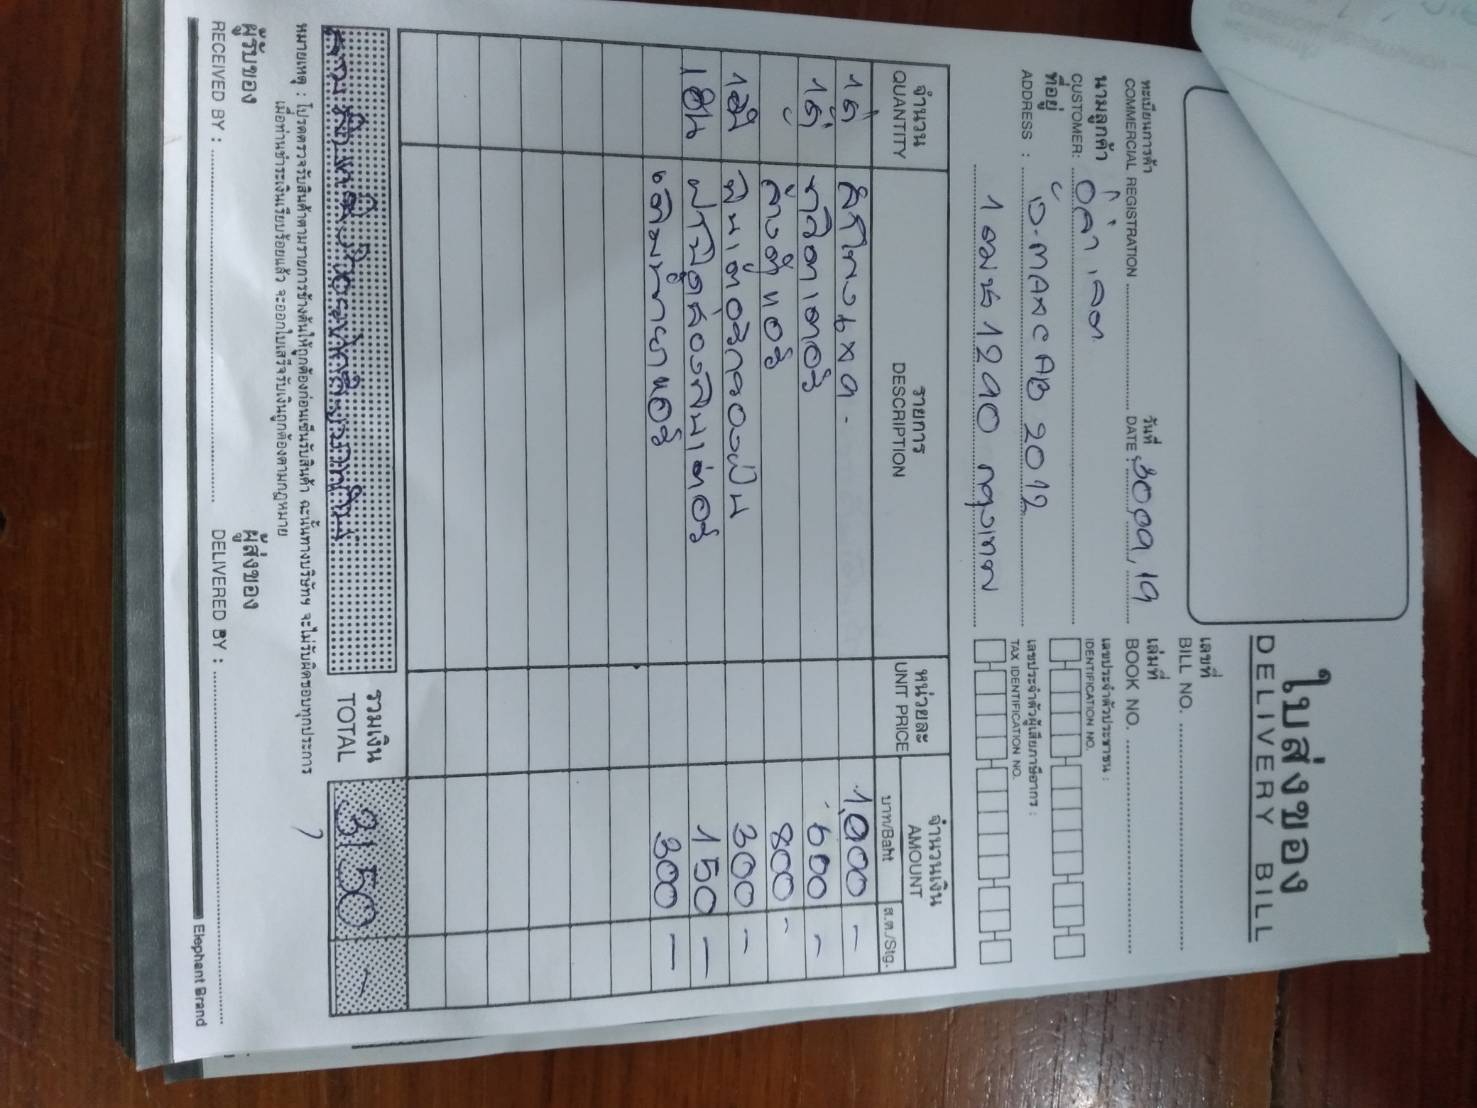 ใบส่งของ
DELIVERY BILL
เลขที่
BILL NO.
ทะเบียนการค้า
COMMERCIAL REGISTRATION
วันที่
DATE 30 09, 19
เล่มที่
BOOK NO.
นามลูกค้า
CUSTOMER:
เลขประจำตัวประชาชน :
IDENTIFICATION NO.
ที่อยู่
ADDRESS : D-MAX CAB 2012
เลขประจำตัวผู้เสียภาษีอากร :
TAX IDENTIFICATION NO.
1ฒฆ 1290 กรุงเทพ
จำนวน
QUANTITY
รายการ
DESCRIPTION
หน่วยละ
UNIT PRICE
จำนวนเงิน
AMOUNT
บาท/Baht
ส.ต./Stg.
1ตัว 1,000 -
1ตัว 600 -
ล้างตู้แอร์ 800 -
1อัน ฟิลเตอร์กรองฝุ่น 300 -
1อัน ฝาปิดช่องฟิลเตอร์ 150 -
เติมน้ำยาแอร์ 300 -
รวมเงิน
TOTAL
3150 -
หมายเหตุ : โปรดตรวจรับสินค้าตามรายการข้างต้นให้ถูกต้องก่อนเซ็นรับสินค้า ฉะนั้นทางบริษัทฯ จะไม่รับผิดชอบทุกประการ
เมื่อท่านชำระเงินเรียบร้อยแล้ว จะออกใบเสร็จรับเงินถูกต้องตามกฎหมาย
ผู้รับของ
RECEIVED BY :
ผู้ส่งของ
DELIVERED BY :
Elephant Brand